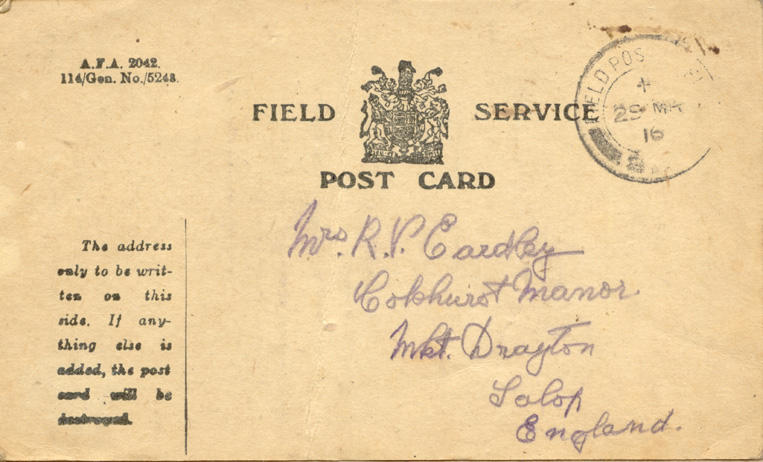 A.F.A. 2042.
114/Gen. No./5248.
FIELD SERVICE
POST CARD
FIELD POS
29 MR
16
The address
only to be writ-
ten on this
side. If any-
thing else is
added, the post
card will be
destroyed.
Mrs. R. V. Eardley
Colehurst Manor.
Mkt. Drayton
Salop
England.